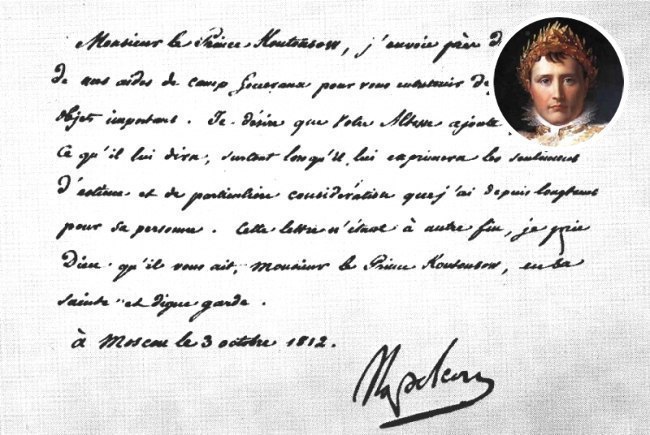 Monsieur le Prince Koutousow, j'envoie près d
de mes aides de camp Généraux pour vous entretenir de
objet important. Je désire que Votre Altesse ajoute
Ce qu'il lui dira, surtout lorsqu'il lui exprimera les sentimens
d'estime et de particulière considération que j'ai depuis longtems
pour sa personne. Cette lettre n'étant à autre fin, je prie
Dieu qu'il vous ait, Monsieur le Prince Koutousow, en sa
sainte et digne garde.
à Moscou le 3 octobre 1812.
Napoleon